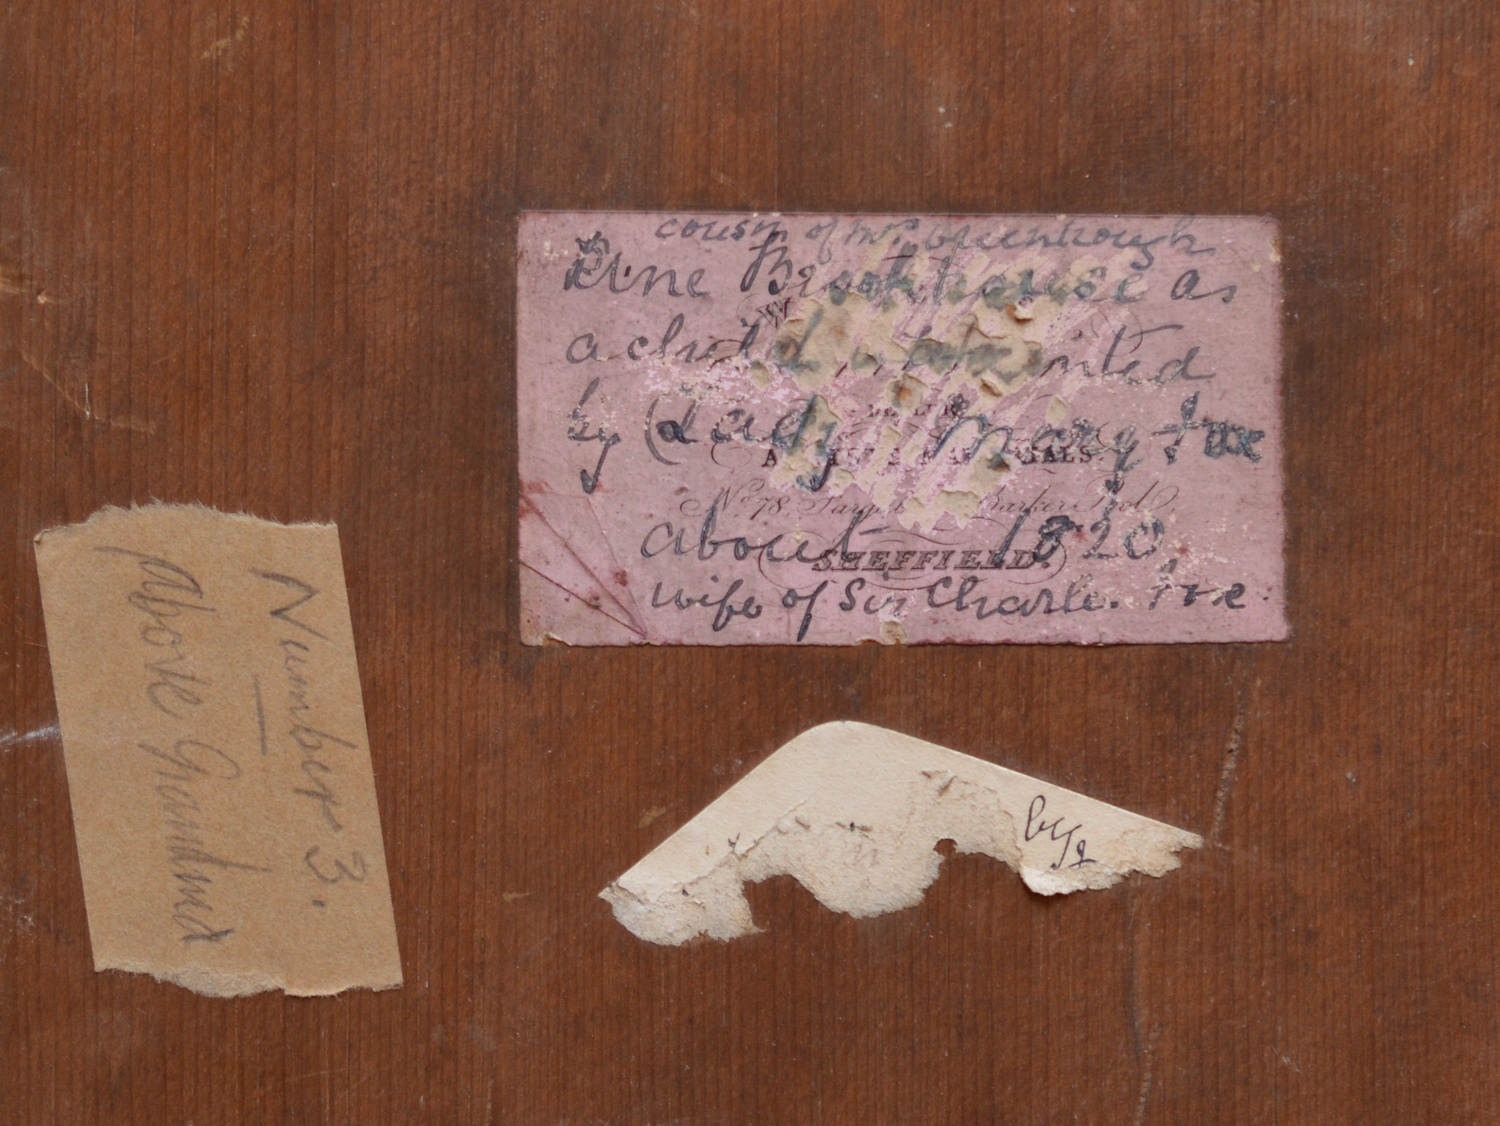 cousin of Mrs Greenhough
Anne Brookhouse as
a child painted
by Lady Mary Fox
ARTISTS MATERIALS
No. 78 Barker Pool
about 1820
SHEFFIELD.
wife of Sir Charles Fox
Number 3.
above
by